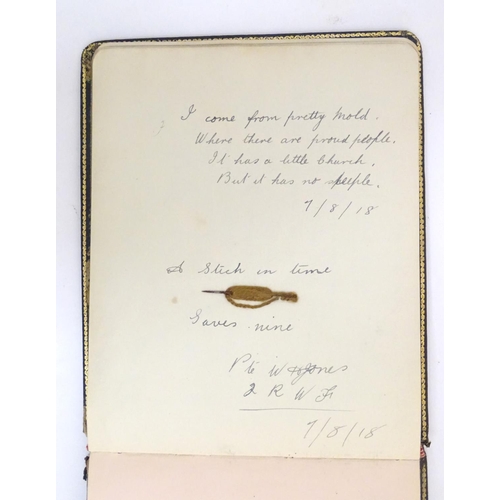 I come from pretty Mold.
Where there are proud people.
It has a little Church,
But it has no steeple.
7/8/18
A Stich in time
Saves nine
Pte W Jones
2 R W F
7/8/18